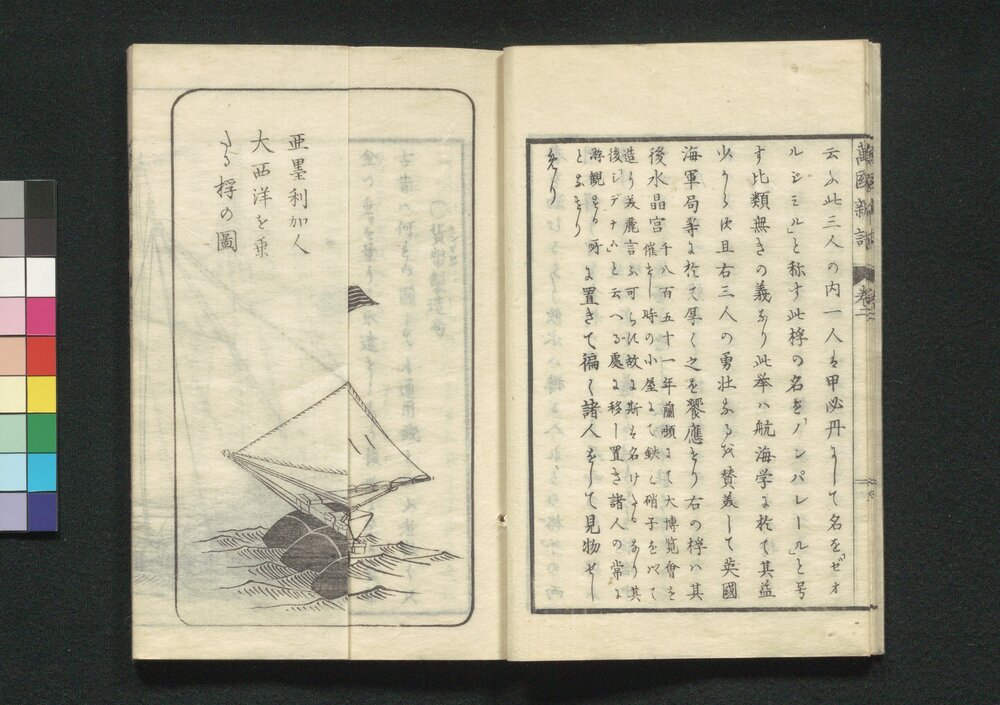 萬國新話 巻之二
云ふ此三人の内一人は甲必丹にして名を「ゼオ
ルジミル」と称す此桴の名を「ノンパレール」と号
す比類無きの義なり此挙ハ航海学に於て其益
少からす且右三人の勇壮なるを賛美して英國
海軍局等に於て厚く之を饗應せり右の桴ハ其
後水晶宮
千八百五十一年蘭頓にて大博覧會を
催せし時の小屋にて鉄と硝子を以て
造り美麗言ふ可らす故に斯は名けたるなり其
後シデナムと云へる處に移し置き諸人の常に
遊観せる所
となせり
に置きて徧く諸人をして見物せし
めり
亜墨利加人
大西洋を乗
たる桴の圖